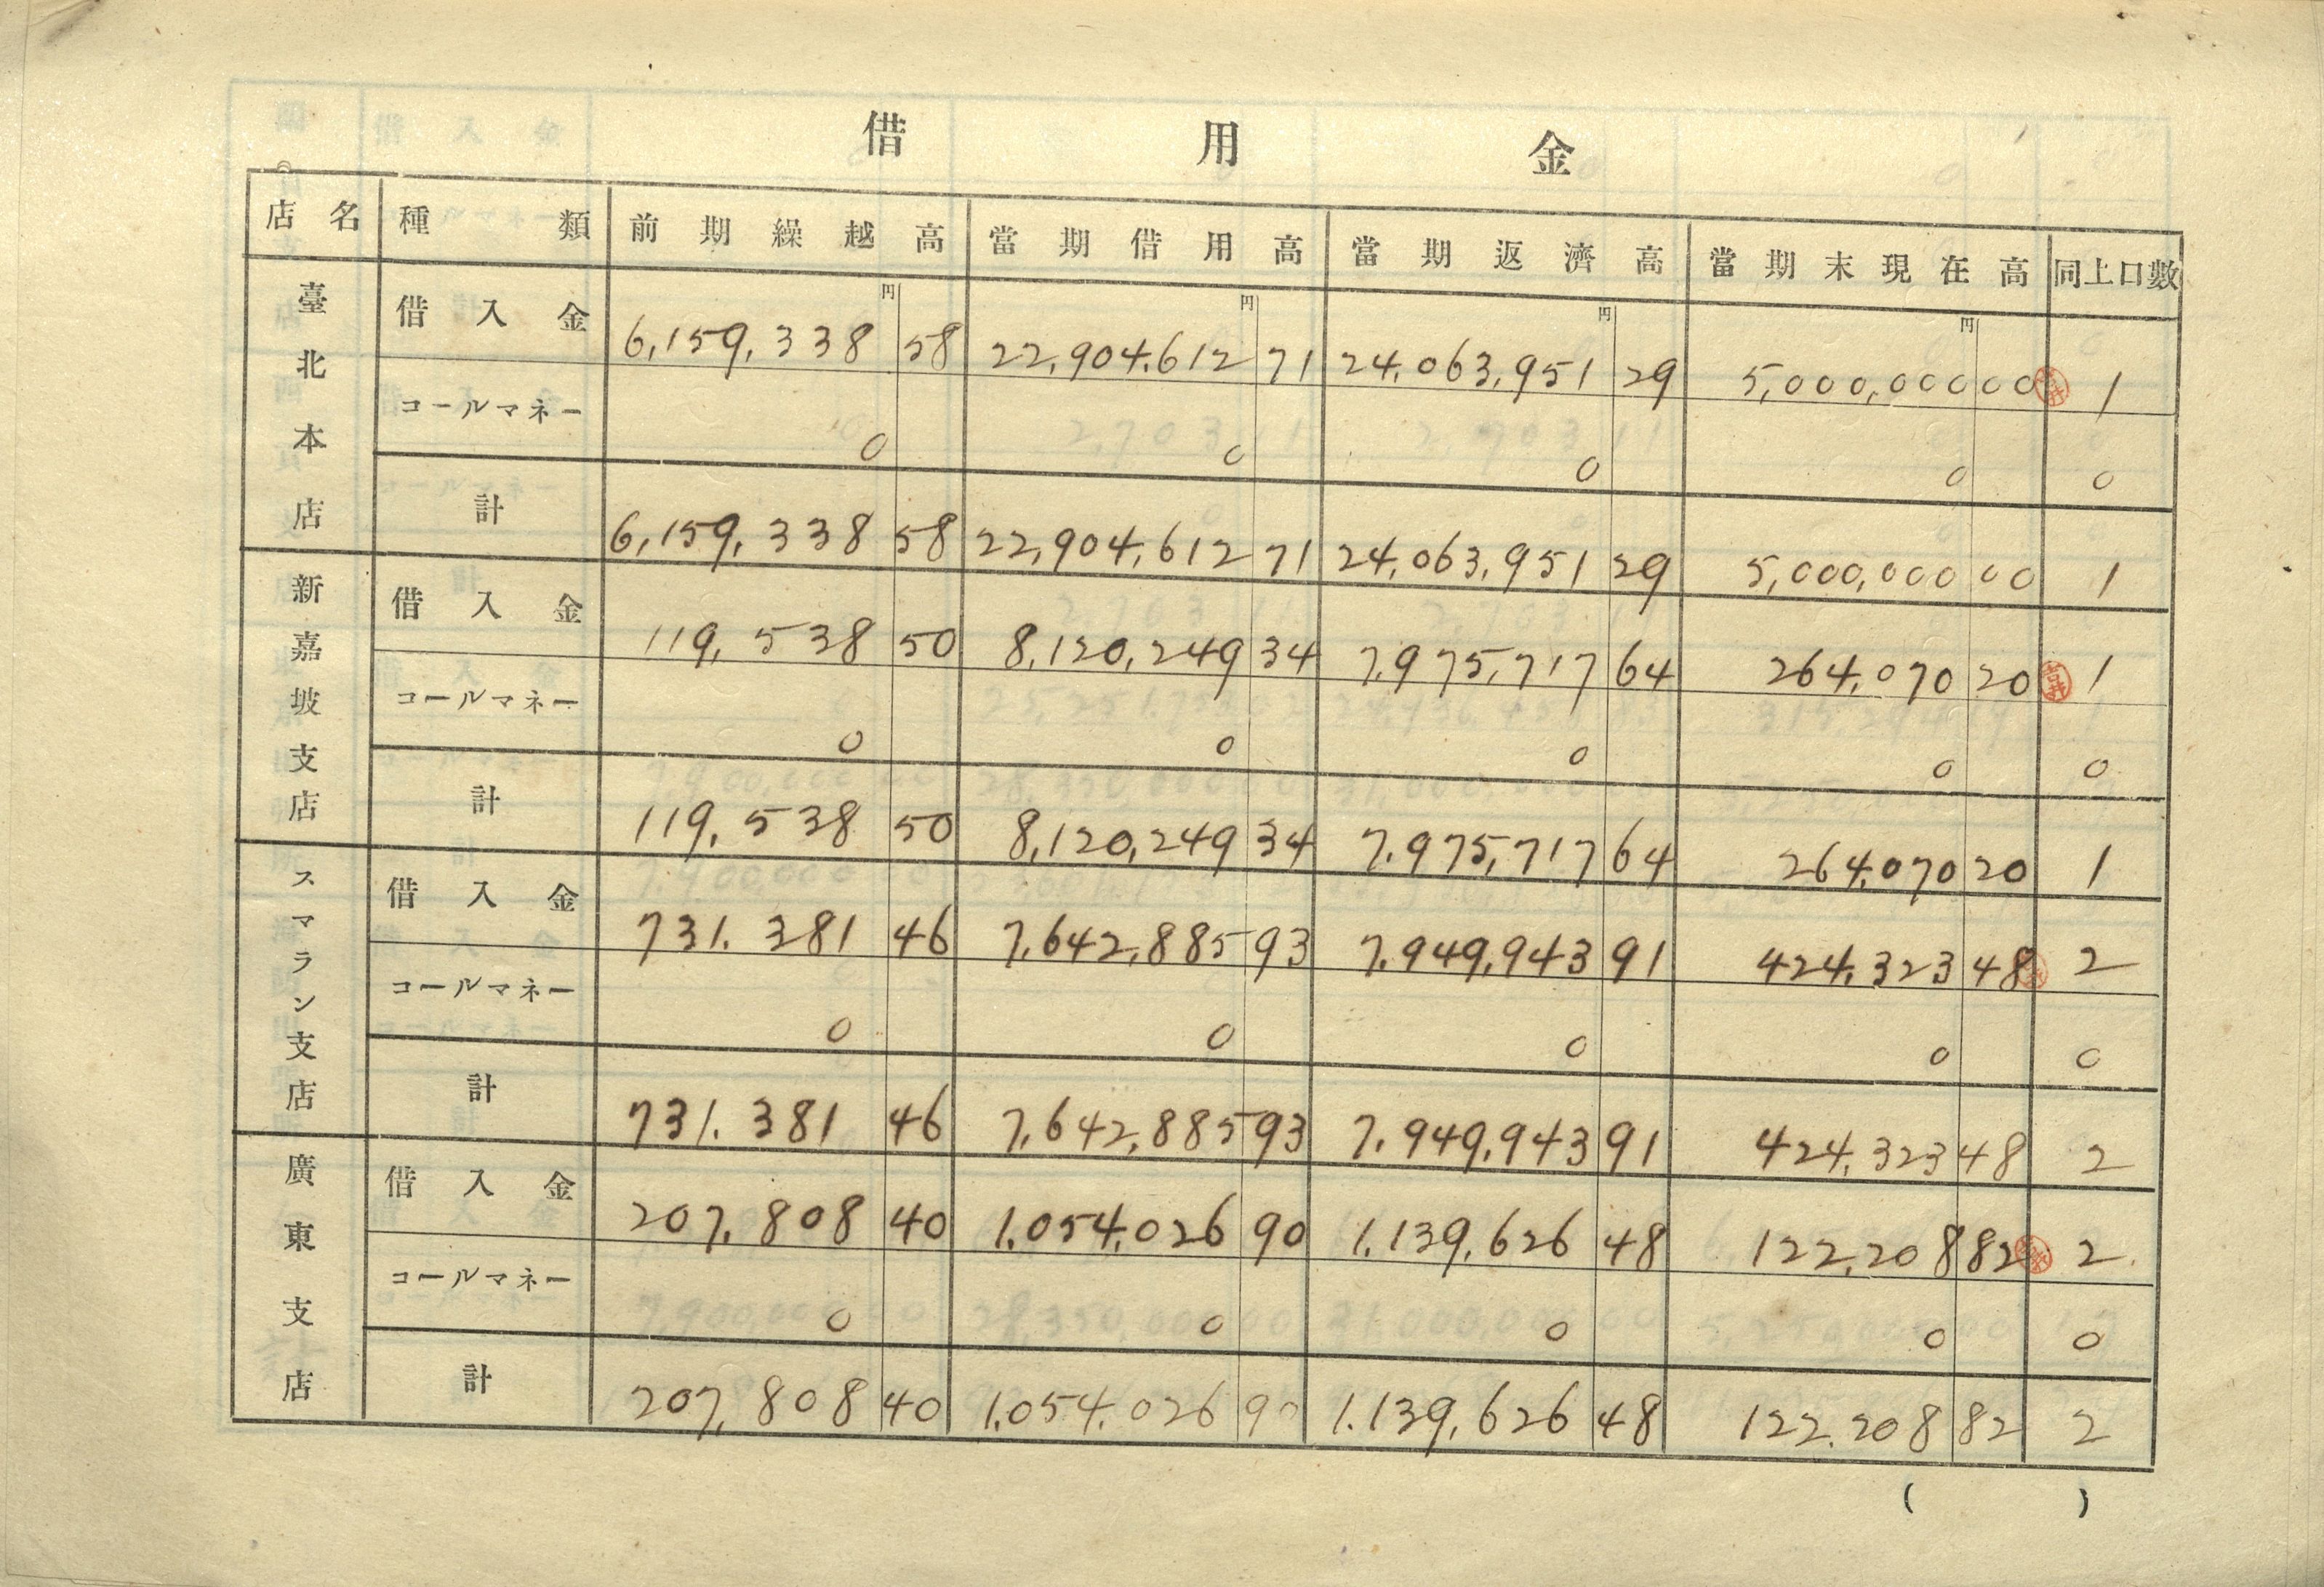 借用金
店名 種類 前期繰越高 當期借用高 當期返濟高 當期末現在高 同上口數
円 円 円 円
臺北本店
借入金 6,159,338 58 22,904,612 71 24,063,951 29 5,000,000 00 1
コールマネー 0 0 0 0 0
計 6,159,338 58 22,904,612 71 24,063,951 29 5,000,000 00 1
新嘉坡支店
借入金 119,538 50 8,120,249 34 7,975,717 64 264,070 20 1
コールマネー 0 0 0 0 0
計 119,538 50 8,120,249 34 7,975,717 64 264,070 20 1
スマラン支店
借入金 731,381 46 7,642,885 93 7,949,943 91 424,323 48 2
コールマネー 0 0 0 0 0
計 731,381 46 7,642,885 93 7,949,943 91 424,323 48 2
廣東支店
借入金 207,808 40 1,054,026 90 1,139,626 48 122,208 82 2
コールマネー 0 0 0 0 0
計 207,808 40 1,054,026 90 1,139,626 48 122,208 82 2
( )